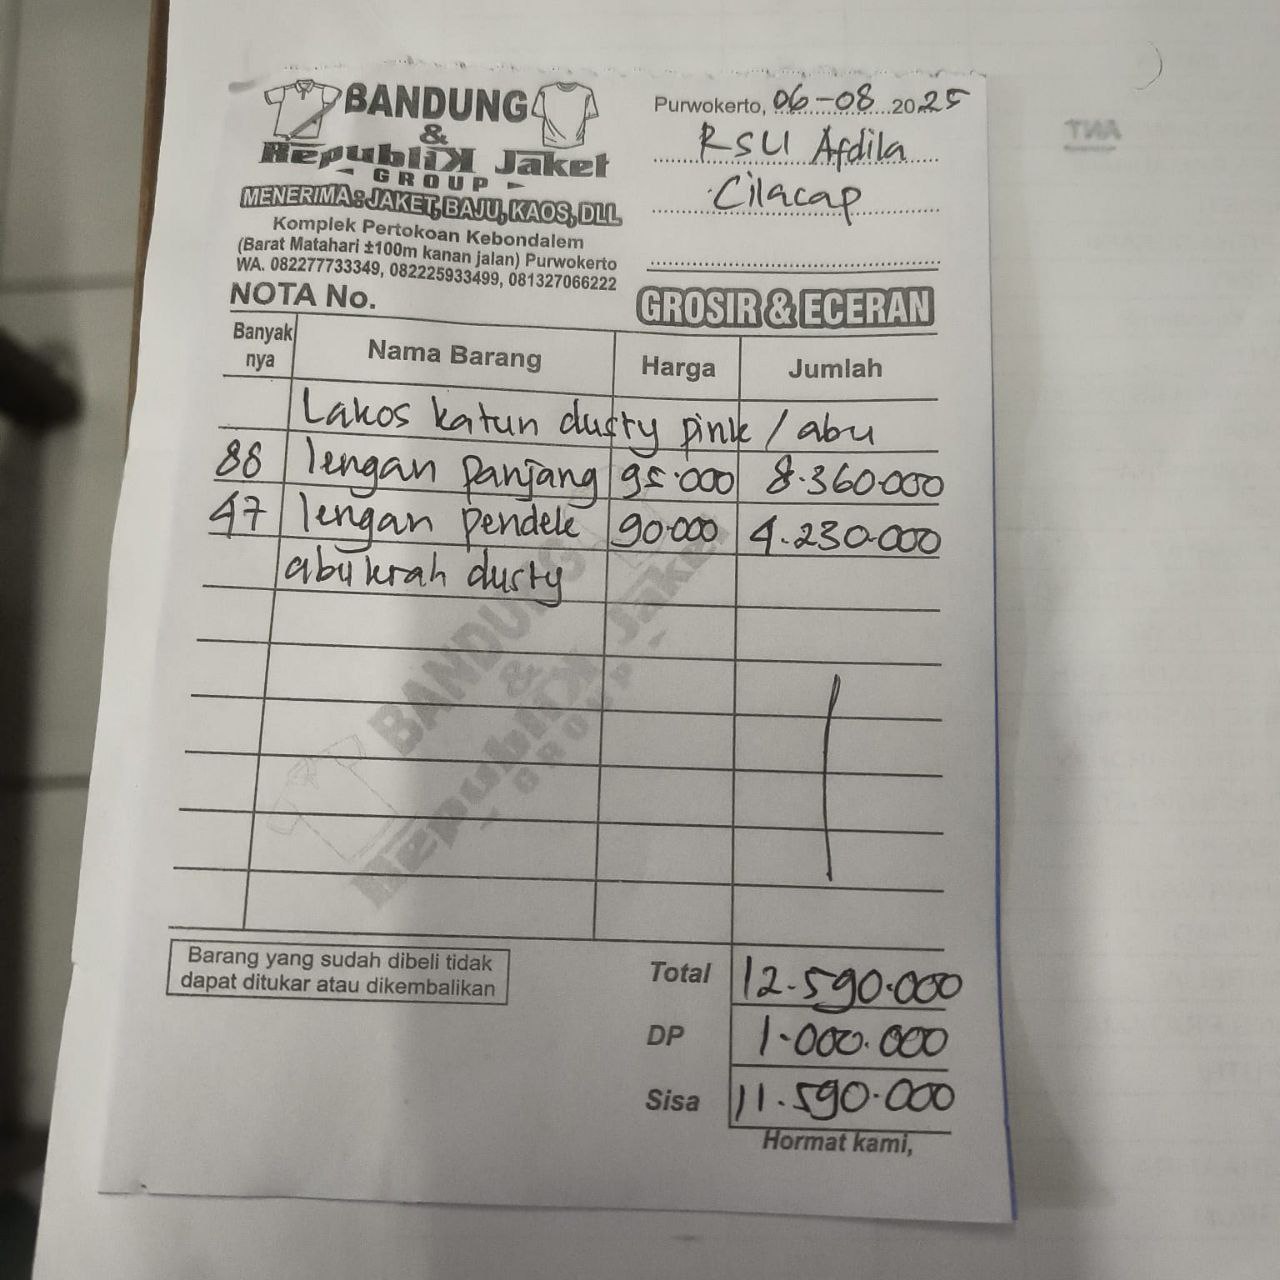 BANDUNG
&
RepubliK Jaket
GROUP
MENERIMA : JAKET, BAJU, KAOS, DLL
Komplek Pertokoan Kebondalem
(Barat Matahari ±100m kanan jalan) Purwokerto
WA. 082277733349, 082225933499, 081327066222
NOTA No.
Purwokerto, 06-08 2025
RSU Afdila
Cilacap
GROSIR & ECERAN
Banyak nya Nama Barang Harga Jumlah
Lakos katun dusty pink / abu
88 lengan panjang 95.000 8.360.000
47 lengan pendek 90.000 4.230.000
abu krah dusty
BANDUNG
&
RepubliK Jaket
GROUP
Barang yang sudah dibeli tidak
dapat ditukar atau dikembalikan
Total 12.590.000
DP 1.000.000
Sisa 11.590.000
Hormat kami,